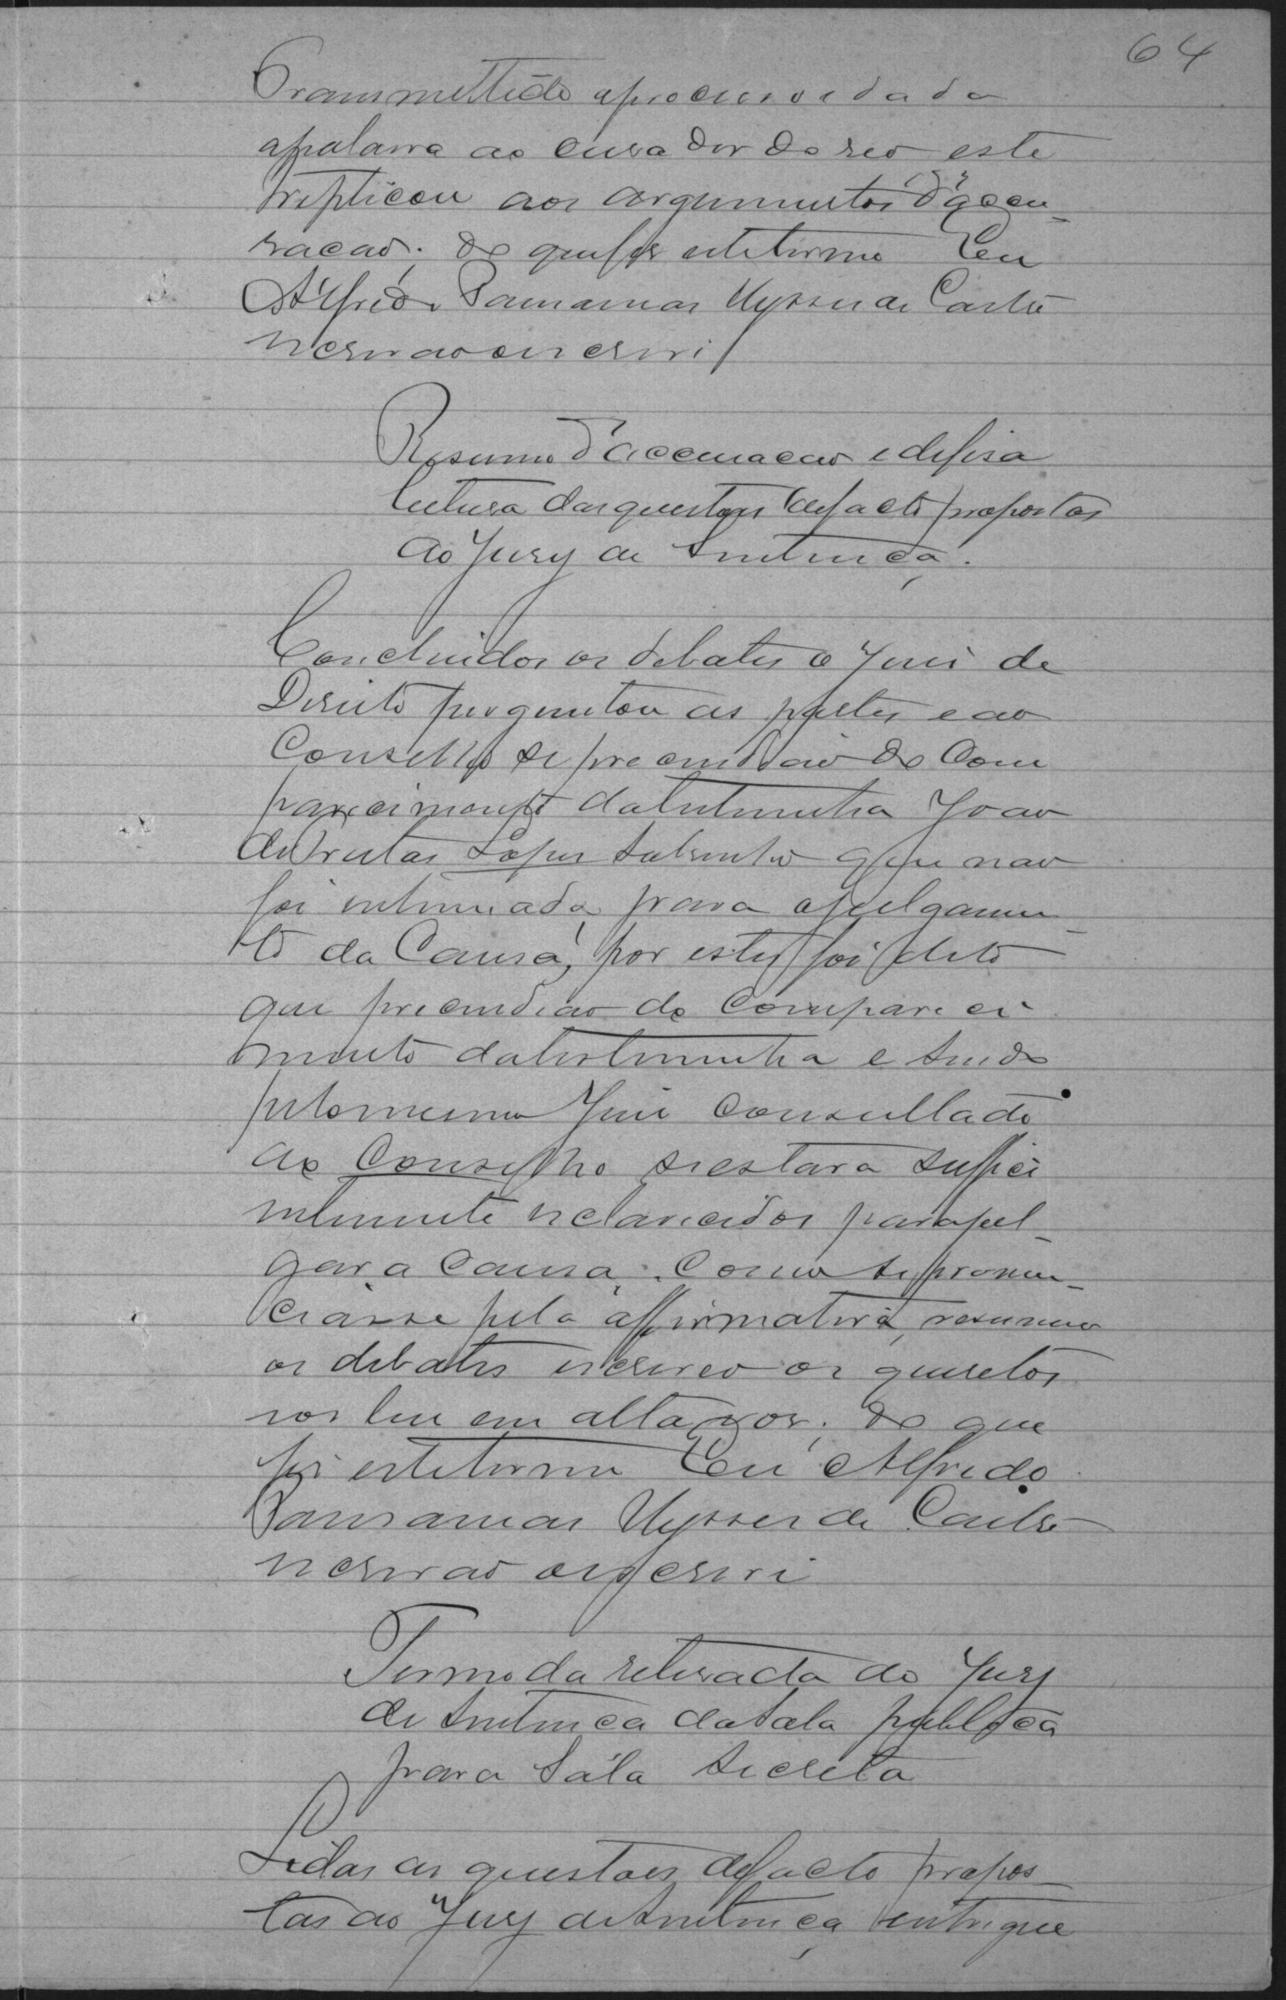 64
Transmettido o processo e dada
a palavra ao curador do reo este
treplicou aos argumentos d'accu-
sacao; do que fiz este termo Eu
Alfredo Ulysses de Castro
escrivao o escrevi
Resumo d'accusacao e defesa
leitura das questões de facto propostas
ao Jury de Sentença.
Concluidos os debates o Juis de
Direito perguntou as partes e ao
Conselho se prescindiao do Com
parecimento da testemunha Joao
de Freitas Lopes Sobrinho que nao
foi intimada para o julgamen-
to da Causa, por estes foi dito
que prescindiao do compareci
mento da testemunha e sendo
pelo mesmo Juis consultado
ao Conselho se estava suffici
entemente esclarecidos para jul-
gar a Causa; Como se pronun-
ciasse pela affirmativa, resumio
os debates escreveo os quesitos
e os leu em alta vos; do que
fiz este termo Eu Alfredo
Ulysses de Castro
escrivao o escrevi
Termo da retirada do Jury
de Sentença da Sala publica
para Sala secreta
Lidas as questões de facto propos-
tas ao Jury de Sentença entregue